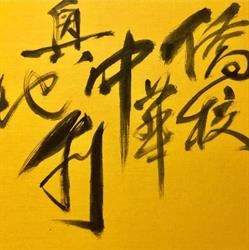 奧地利
中華
僑校